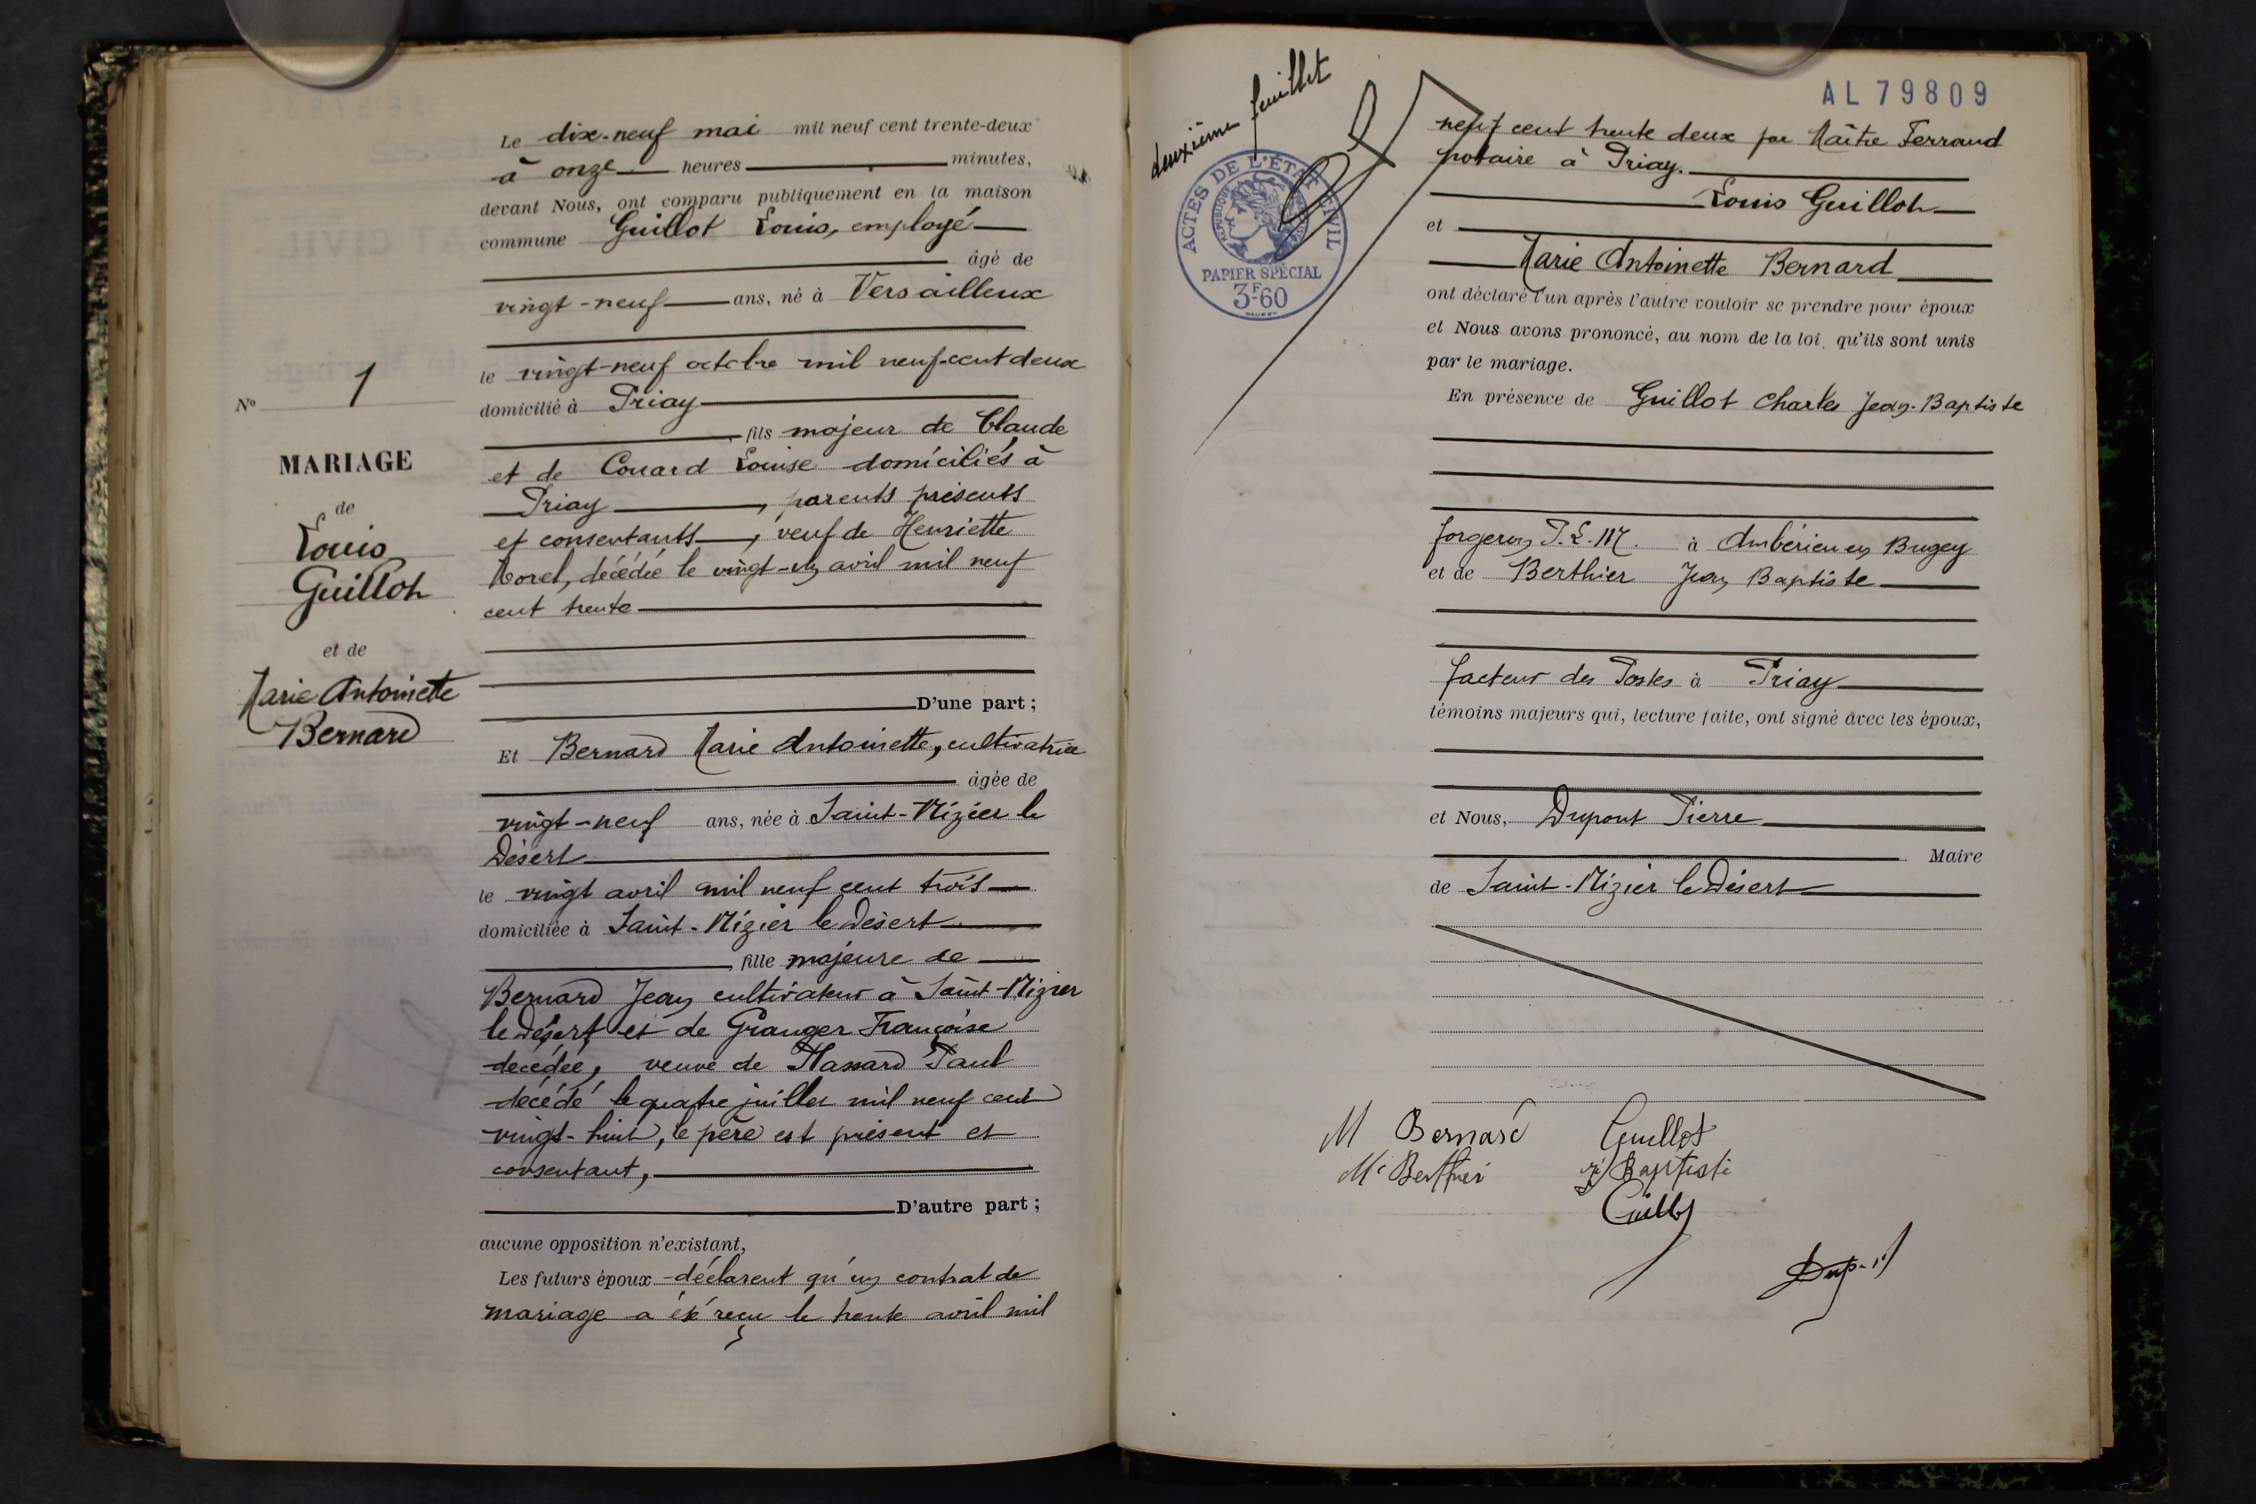 Le dix-neuf mai mil neuf cent trente-deux
à onze heures minutes,
devant Nous, ont comparu publiquement en la maison
commune Guillot Louis, employé
âgé de
vingt-neuf ans, né à Versailleux
le vingt-neuf octobre mil neuf-cent deux
domicilié à Priay
fils majeur de Claude
et de Couard Louise domiciliés à
Priay, parents présents
et consentants, veuf de Henriette
Morel, décédée le vingt-un avril mil neuf
cent trente
D'une part ;
Et Bernard Marie Antoinette, cultivatrice
âgée de
vingt-neuf ans, née à Saint-Nizier le
Désert
le vingt avril mil neuf cent trois
domiciliée à Saint-Nizier le Désert
fille majeure de
Bernard Jean cultivateur à Saint-Nizier
le Désert et de Granger Françoise
décédée, veuve de Massard Paul
décédé le quatre juillet mil neuf cent
vingt-huit, le père est présent et
consentant,
D'autre part ;
aucune opposition n'existant,
Les futurs époux déclarent qu'un contrat de
mariage a été reçu le trente avril mil
N° 1
MARIAGE
de
Louis
Guillot
et de
Marie Antoinette
Bernard
deuxième feuillet
ACTES DE L'ÉTAT CIVIL
PAPIER SPÉCIAL
3F60
AL 79809
neuf cent trente deux par Maître Ferrand
notaire à Priay.
Louis Guillot
et
Marie Antoinette Bernard
ont déclaré l'un après l'autre vouloir se prendre pour époux
et Nous avons prononcé, au nom de la loi, qu'ils sont unis
par le mariage.
En présence de Guillot Charles Jean-Baptiste
forgeron P.L.M. à Ambérieu en Bugey
et de Berthier Jean Baptiste
facteur des Postes à Priay
témoins majeurs qui, lecture faite, ont signé avec les époux,
et Nous, Dupont Pierre
Maire
de Saint-Nizier le Désert
M Bernard Guillot
Berthier Baptiste
Guillot